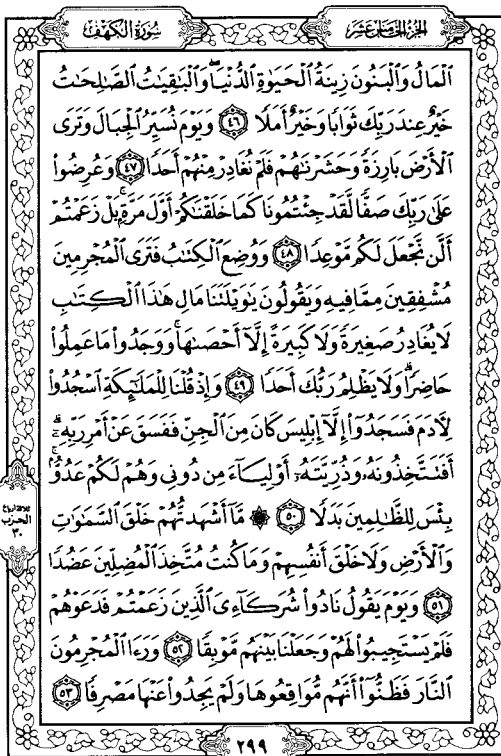 الجزء الخامس عشر
سورة الكهف
ٱلْمَالُ وَٱلْبَنُونَ زِينَةُ ٱلْحَيَوٰةِ ٱلدُّنْيَاۖ وَٱلْبَٰقِيَٰتُ ٱلصَّٰلِحَٰتُ
خَيْرٌ عِندَ رَبِّكَ ثَوَابًا وَخَيْرٌ أَمَلًا ٤٦ وَيَوْمَ نُسَيِّرُ ٱلْجِبَالَ وَتَرَى
ٱلْأَرْضَ بَارِزَةً وَحَشَرْنَٰهُمْ فَلَمْ نُغَادِرْ مِنْهُمْ أَحَدًا ٤٧ وَعُرِضُوا۟
عَلَىٰ رَبِّكَ صَفًّا لَّقَدْ جِئْتُمُونَا كَمَا خَلَقْنَٰكُمْ أَوَّلَ مَرَّةٍۭۚ بَلْ زَعَمْتُمْ
أَلَّن نَّجْعَلَ لَكُم مَّوْعِدًا ٤٨ وَوُضِعَ ٱلْكِتَٰبُ فَتَرَى ٱلْمُجْرِمِينَ
مُشْفِقِينَ مِمَّا فِيهِ وَيَقُولُونَ يَٰوَيْلَتَنَا مَالِ هَٰذَا ٱلْكِتَٰبِ
لَا يُغَادِرُ صَغِيرَةً وَلَا كَبِيرَةً إِلَّآ أَحْصَىٰهَاۚ وَوَجَدُوا۟ مَا عَمِلُوا۟
حَاضِرًاۗ وَلَا يَظْلِمُ رَبُّكَ أَحَدًا ٤٩ وَإِذْ قُلْنَا لِلْمَلَٰٓئِكَةِ ٱسْجُدُوا۟
لِءَادَمَ فَسَجَدُوٓا۟ إِلَّآ إِبْلِيسَ كَانَ مِنَ ٱلْجِنِّ فَفَسَقَ عَنْ أَمْرِ رَبِّهِۦٓۗ
أَفَتَتَّخِذُونَهُۥ وَذُرِّيَّتَهُۥٓ أَوْلِيَآءَ مِن دُونِى وَهُمْ لَكُمْ عَدُوٌّۢۚ
بِئْسَ لِلظَّٰلِمِينَ بَدَلًا ٥٠ ۞ مَّآ أَشْهَدتُّهُمْ خَلْقَ ٱلسَّمَٰوَٰتِ
وَٱلْأَرْضِ وَلَا خَلْقَ أَنفُسِهِمْ وَمَا كُنتُ مُتَّخِذَ ٱلْمُضِلِّينَ عَضُدًا
٥١ وَيَوْمَ يَقُولُ نَادُوا۟ شُرَكَآءِىَ ٱلَّذِينَ زَعَمْتُمْ فَدَعَوْهُمْ
فَلَمْ يَسْتَجِيبُوا۟ لَهُمْ وَجَعَلْنَا بَيْنَهُم مَّوْبِقًا ٥٢ وَرَءَا ٱلْمُجْرِمُونَ
ٱلنَّارَ فَظَنُّوٓا۟ أَنَّهُم مُّوَاقِعُوهَا وَلَمْ يَجِدُوا۟ عَنْهَا مَصْرِفًا ٥٣
الحزب
٣٠
٢٩٩